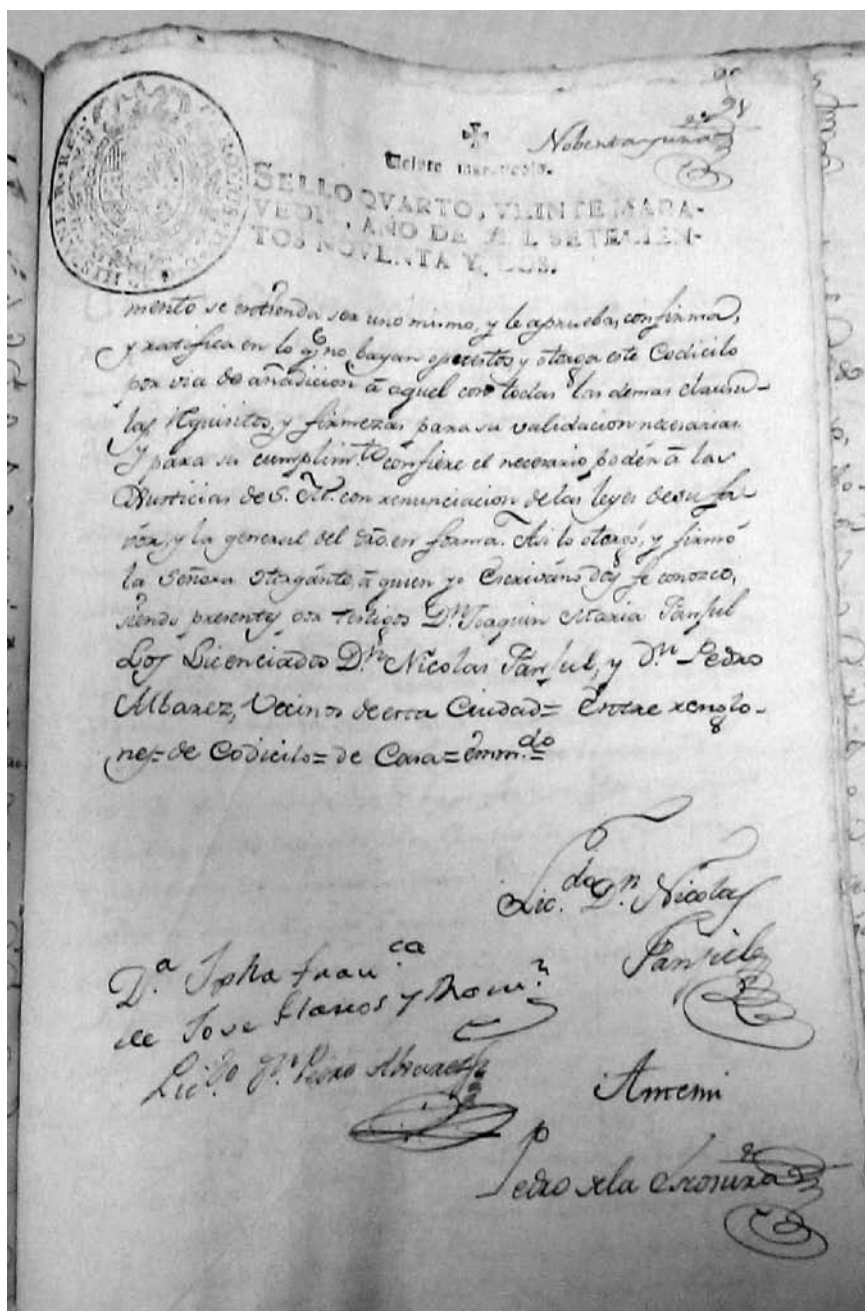 91
Nobenta y una
Veinte maravedis.
SELLO QVARTO, VEINTE MARA-
VEDIS, AÑO DE MIL SETECIEN-
TOS NOVENTA Y DOS.
mento se entienda ser uno mismo, y le aprueba, confirma,
y ratifica en lo q.e no bayan opuestos y otorga este Codicilo
por via de añadicion â aquel con todas las demas clausu-
las requisitos, y firmezas para su validacion necesarias
Y para su cumplim.to confiere el necesario poder â las
Justicias de S. M. con renunciacion de las leyes de su fa
vor, y la general del dro. en forma. Asi lo otorgó, y firmó
la Señora otorgante, â quien yo Escrivano doy fe conozco,
siendo presentes por testigos D.n Joaquin Maria Fanjul
Los Licenciados D.n Nicolas Fanjul, y D.n Pedro
Albarez, Vecinos de esta Ciudad= Entre renglo-
nes= de Codicilo= de Casa= emm.do=
Lic.do D.n Nicolas
Fanjul
D.a Jpha Fran.ca
de Jove Llanos y
Lic.do D.n Pedro Alvarez
Antemi
Pedro de la